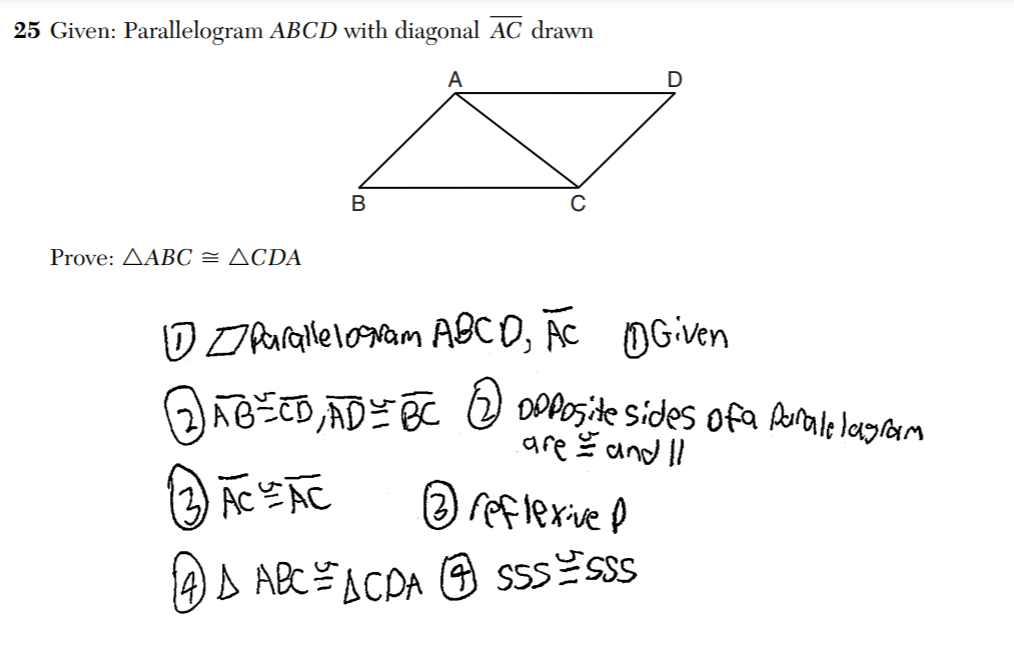 25 Given: Parallelogram ABCD with diagonal A̅C̅ drawn
A D
B C
Prove: △ABC ≅ △CDA
① ▱ Parallelogram ABCD, A̅C̅ ① Given
② A̅B̅ ≅ C̅D̅, A̅D̅ ≅ B̅C̅ ② opposite sides of a paralelagram
are ≅ and ||
③ A̅C̅ ≅ A̅C̅ ③ reflexive p
④ △ ABC ≅ △CDA ④ SSS ≅ SSS